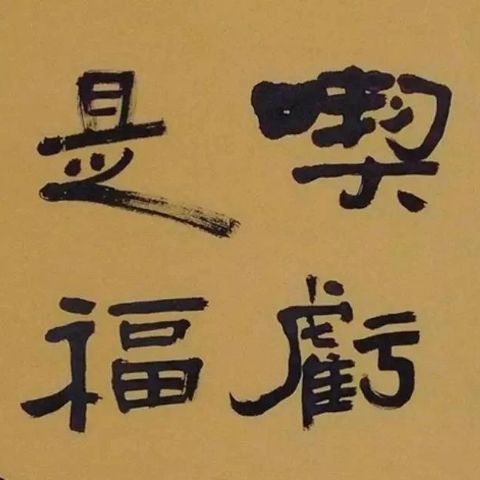 喫虧
是福